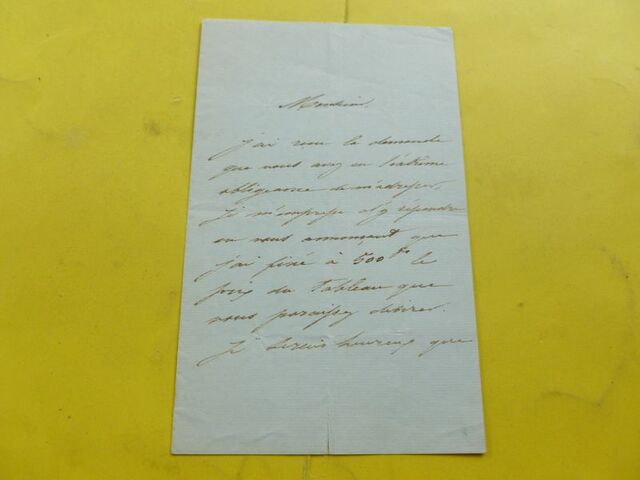 Monsieur,
j'ai reçu la demande
que vous avez eu l'extrême
obligeance de m'adresser,
Je m'empresse d'y répondre
en vous annonçant que
j'ai fixé à 500 frs le
prix du Tableau que
vous paraissez désirer.
Je serais heureux que